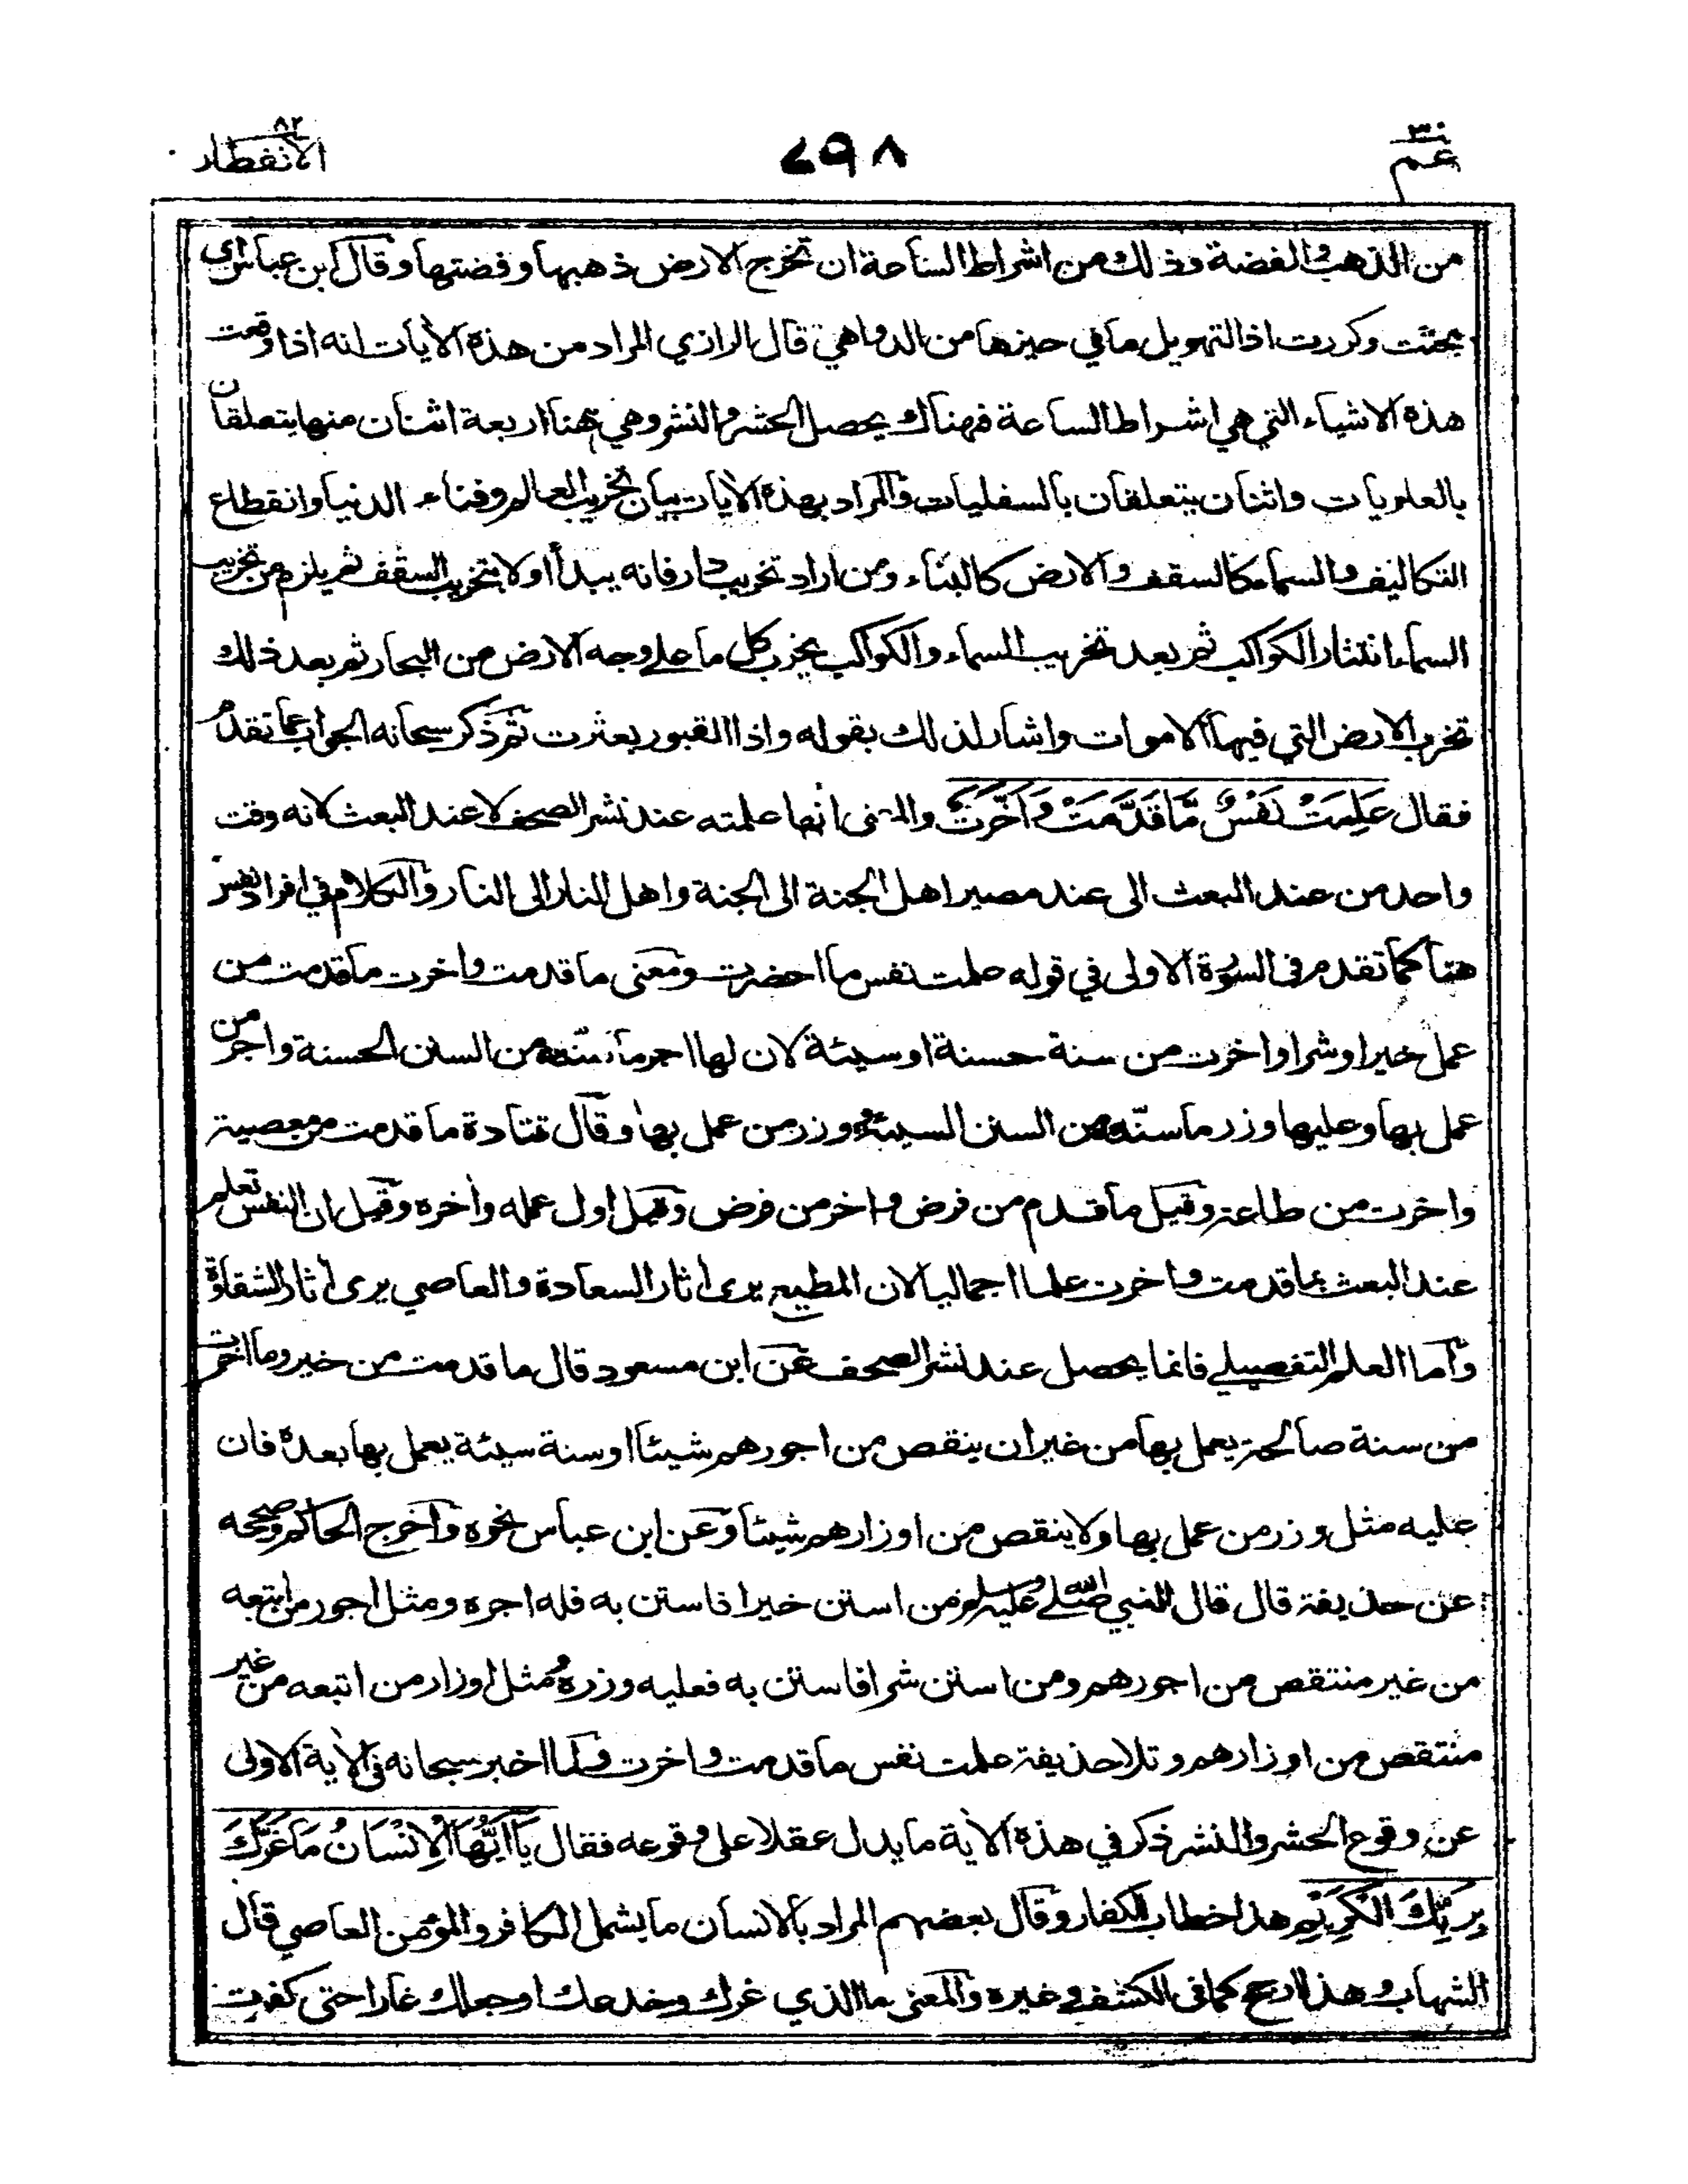 عم ٣٠
٤٩٨
الانفطار ٨٢
من الذهب والفضة وذلك من اشراط الساعة ان تخرج الارض ذهبها وفضتها وقال ابن عباس اي
بحثت وكررت اذا لتهويل ما في حيزها من الدواهي قال الرازي المراد من هذه الآيات انه اذا وقعت
هذه الاشياء التي هي اشراط الساعة فهناك يحصل الحشر والنشر وهي ههنا اربعة اثنان منها يتعلقان
بالعلويات واثنان يتعلقان بالسفليات والمراد بهذه الآيات بيان تخريب العالم وفناء الدنيا وانقطاع
التكاليف والسماء كالسقف والارض كالبناء ومن اراد تخريب دار فانه يبدأ اولا بتخريب السقف ثم يلزم من تخريب
السماء انتثار الكواكب ثم بعد تخريب السماء والكواكب يخرب كل ما على وجه الارض من البحار ثم بعد ذلك
تخرب الارض التي فيها الاموات واشار لذلك بقوله واذا القبور بعثرت ثم ذكر سبحانه الجواب عما تقدم
فقال عَلِمَتْ نَفْسٌ مَّا قَدَّمَتْ وَاَخَّرَتْ والمعنى انها علمته عند نشر الصحف لا عند البعث لانه وقت
واحد من عند البعث الى عند مصير اهل الجنة الى الجنة واهل النار الى النار والكلام في افراد نفس
هنا كما تقدم في السورة الاولى في قوله علمت نفس ما احضرت ومعنى ما قدمت واخرت ما قدمت من
عمل خير او شر او اخرت من سنة حسنة او سيئة لان لها اجر ما سنته من السنن الحسنة واجر من
عمل بها وعليها وزر ما سنّته من السنن السيئة ووزر من عمل بها وقال قتادة ما قدمت من معصية
واخرت من طاعة وقيل ما قدم من فرض واخر من فرض وقيل اول عمله وآخره وقيل ان النفس تعلم
عند البعث بما قدمت واخرت علما اجماليا لان المطيع يرى آثار السعادة والعاصي يرى آثار الشقاوة
وأما العلم التفصيلي فانما يحصل عند نشر الصحف عن ابن مسعود قال ما قدمت من خير وما اخرت
من سنة صالحة يعمل بها من غير ان ينقص من اجورهم شيئا او سنة سيئة يعمل بها بعده فان
عليه مثل وزر من عمل بها ولا ينقص من اوزارهم شيئا وعن ابن عباس نحوه وأخرج الحاكم وصححه
عن حذيفة قال قال النبي صلى الله عليه وسلم من استن خيرا فاستن به فله اجره ومثل اجور من اتبعه
من غير منتقص من اجورهم ومن استن شرا فاستن به فعليه وزره ومثل اوزار من اتبعه من غير
منتقص من اوزارهم وتلا حذيفة علمت نفس ما قدمت واخرت ولما اخبر سبحانه في الآية الاولى
عن وقوع الحشر والنشر ذكر في هذه الآية ما يدل عقلا على وقوعه فقال يَا اَيُّهَا الْاِنْسَانُ مَا غَرَّكَ
بِرَبِّكَ الْكَرِيْمِ هذا خطاب للكفار وقال بعضهم المراد بالانسان ما يشمل الكافر والمؤمن العاصي قال
الشهاب وهذا ارجح كما في الكشف وغيره والمعنى ما الذي غرك وخدعك وجعلك غارا حتى كفرت